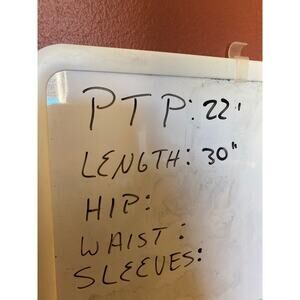 PTP: 22"
LENGTH: 30"
HIP:
WAIST:
SLEEVES: